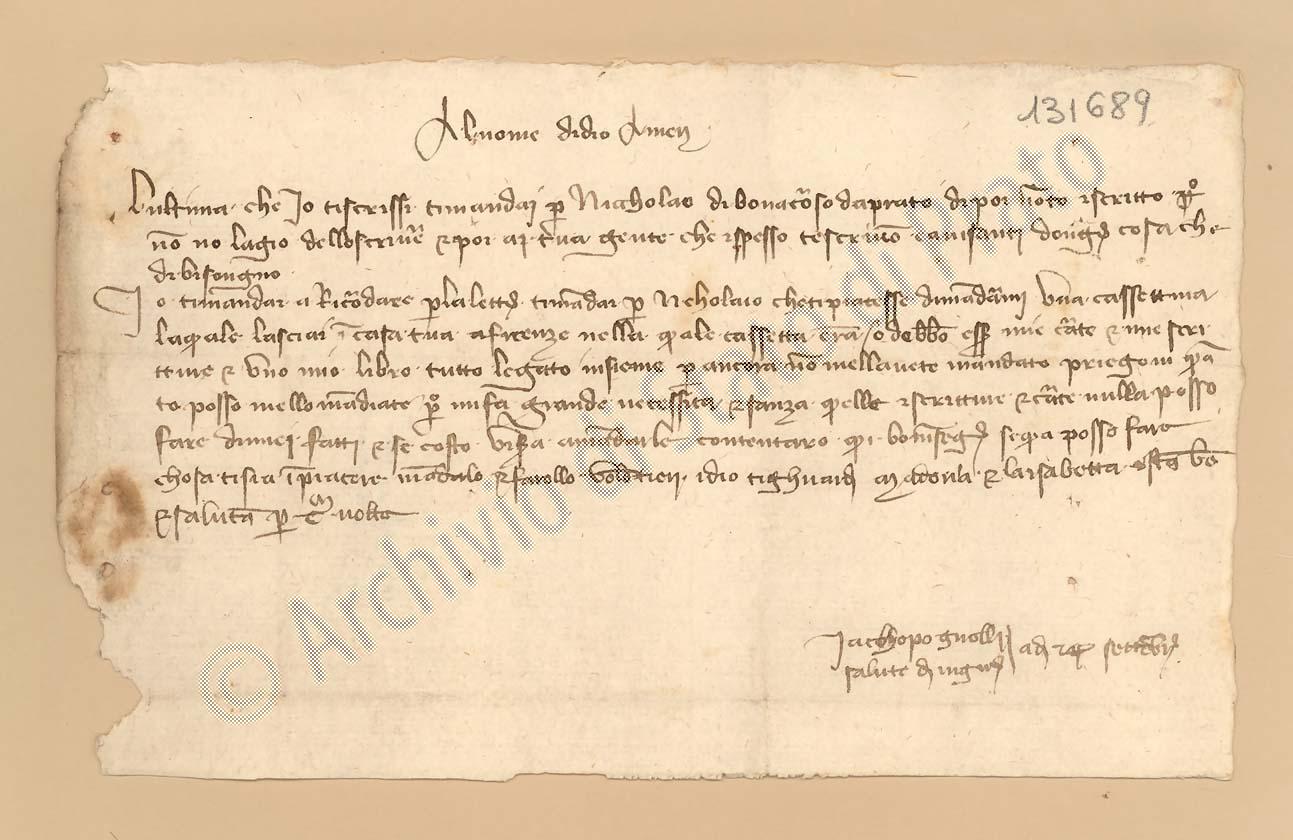 131689
Al nome di dio Amen
L'ultima che Io ti scrissi ti mandai per Nicholao di bonacorso da prato di poi non to iscritto p(er)o
non no l'agio dello scrivere & poi ai tua gente che ispesso te scrivono e avisanti d'ongni cosa che
di bisongno
Io ti mandai a Ricordare per la lettera ti mandai per Nicholaio che ti piacesse di mandarmi Una cassettina
la quale lasciai in casa tua a firenze nella quale cassetta era o debbono essere mie carte & mie scri
tture & Uno mio libro tutto legato insieme per ancora non me llavete mandato priegovi quan
to posso me llo mandiate pero mi fa grande necessita & sanza quelle iscritture & carte nulla posso
fare di miei fatti & se costo Venisse a mandarle contentaro qui boninsegna se qua posso fare
chosa ti sia in piacere mandalo & farollo Volontieri idio ti ghuardi Madonna & la isabetta sta bene
& saluta per M volte
Iachopo gnolli
salute di
adi settenbre
© Archivio di Stato di Prato